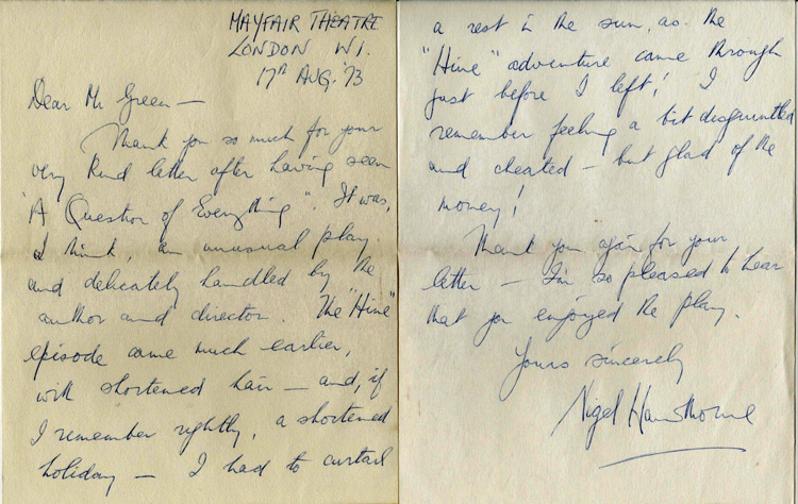 MAYFAIR THEATRE
LONDON W1.
17th AUG. '73
Dear Mr Green —
Thank you so much for your
very kind letter after having seen
"A Question of Everything". It was,
I think, an unusual play
and delicately handled by the
author and director. The "Hine"
episode came much earlier,
with shortened hair — and, if
I remember rightly, a shortened
holiday — I had to curtail
a rest in the sun, as the
"Hine" adventure came through
just before I left! I
remember feeling a bit disgruntled
and cheated — but glad of the
money!
Thank you again for your
letter — I'm so pleased to hear
that you enjoyed the play.
Yours sincerely
Nigel Hawthorne